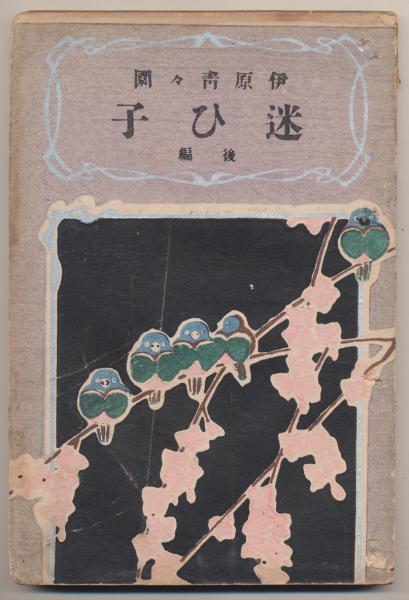 伊原青々園
迷ひ子
後編